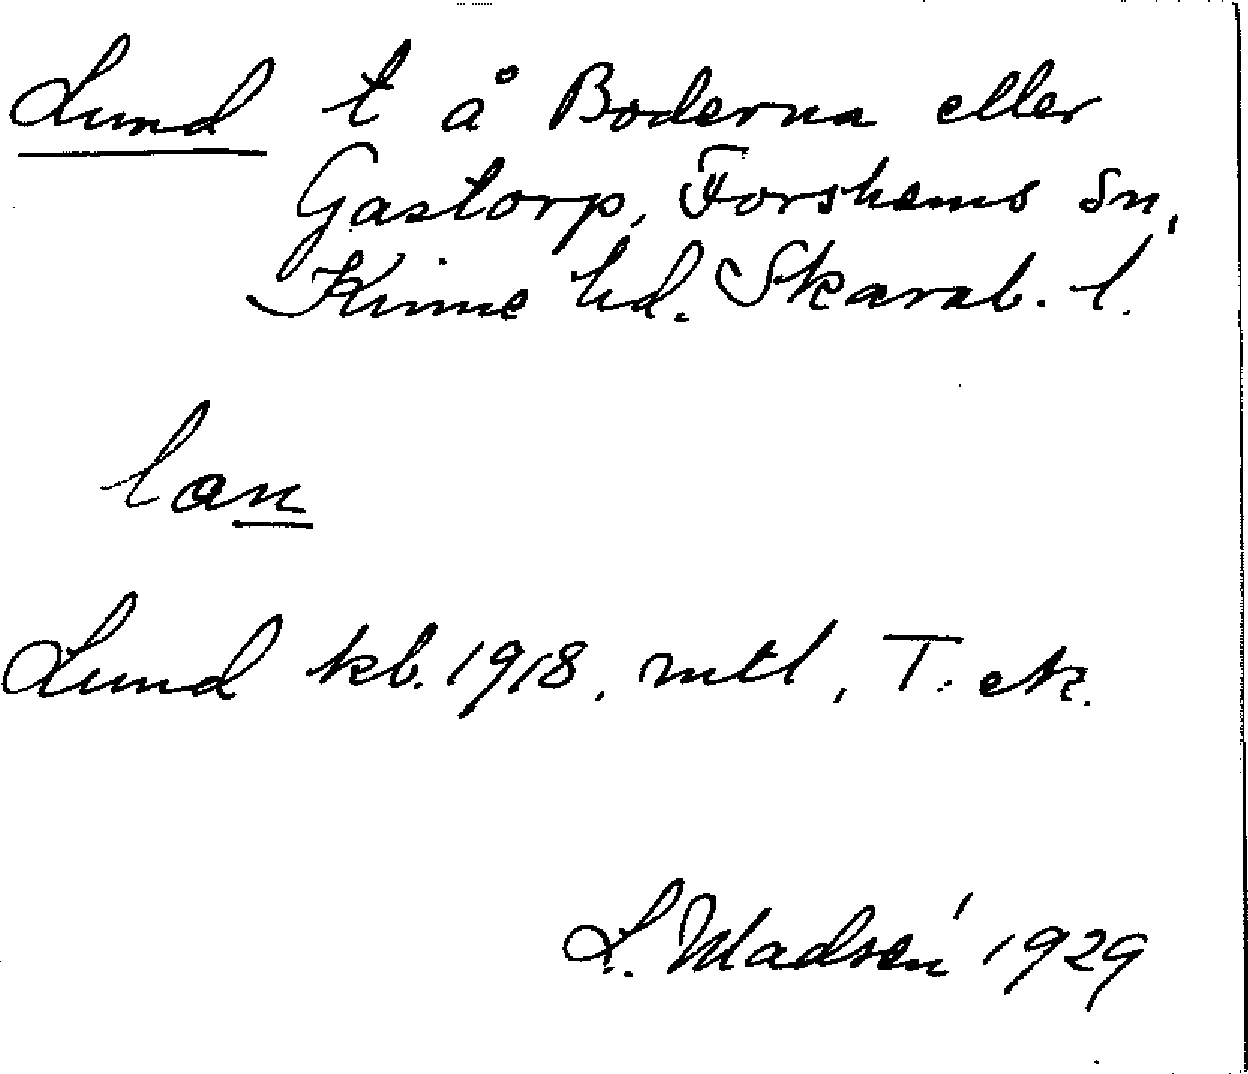 Lund t å Boderna eller
Gastorp, Forshems sn,
Kinne hd. Skarab. l.
lan
Lund kb. 1918, mtl, T. ek.
L. Madsén 1929